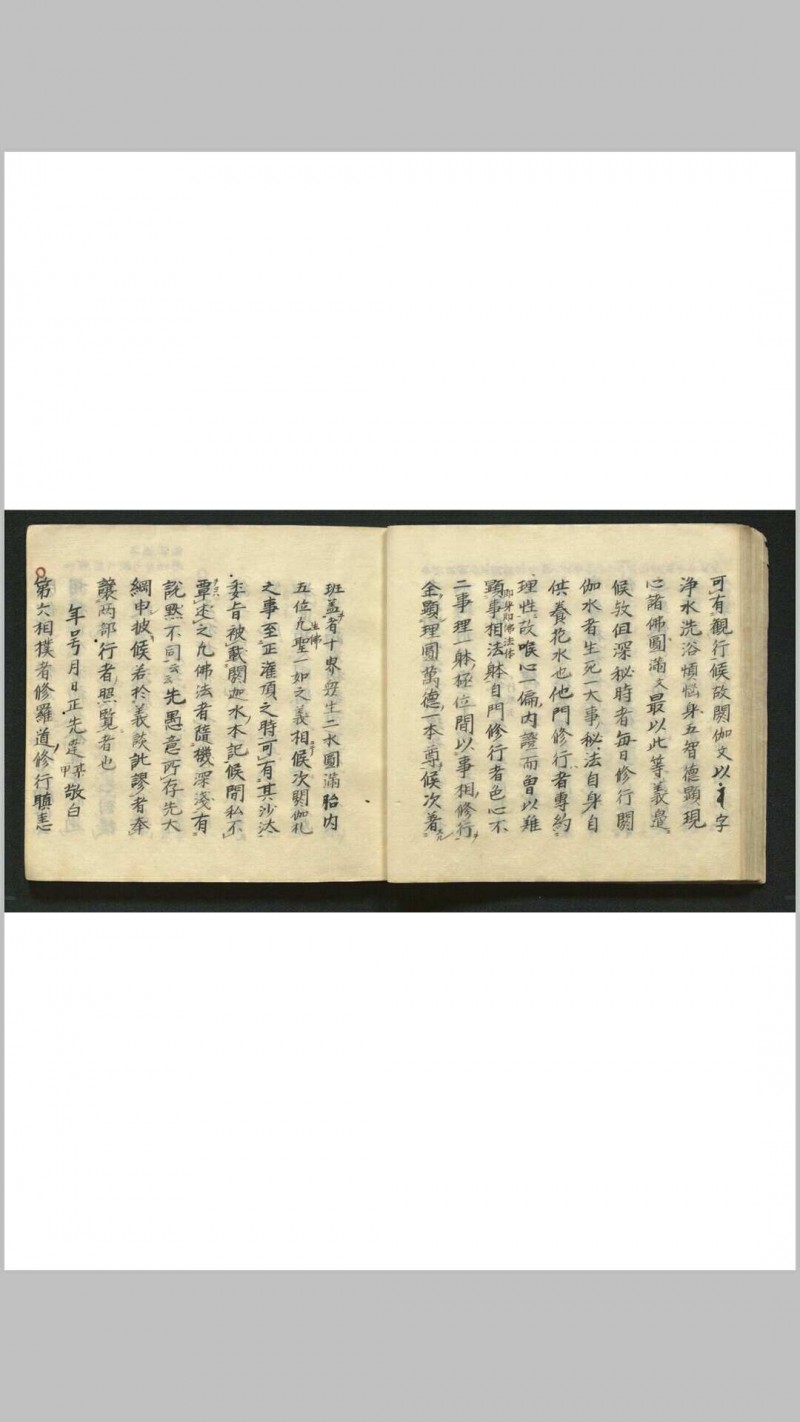 可有観行候故閼伽文以
字
浄水洗浴煩悩身五智徳顕現
心諸佛圓滿文最以此等義是
候欤但深秘時者毎日修行閼
伽水者生死一大事秘法自身自
供養花水也他門修行者専約
理性故唯心一偏内證而曾以難
顕事相法躰自門修行者色心不
即身即佛法体
二事理一躰極位間以事相修行
金顕理圓萬徳一本尊候次著
班蓋者十界衆生二水圓滿胎内
五位凡聖一如之義相候次閼伽札
生佛
之事至正灌頂之時可有其沙汰
委旨被載閼迦水本記候間私不
覃述之凡佛法者随機深淺有
説黙不同云云先愚意所存先大
綱申披候若於義談訛謬者奉
譲兩部行者照覧者也
年号月日正先達
某甲
敬白
第六相撲者修羅道修行瞋恚